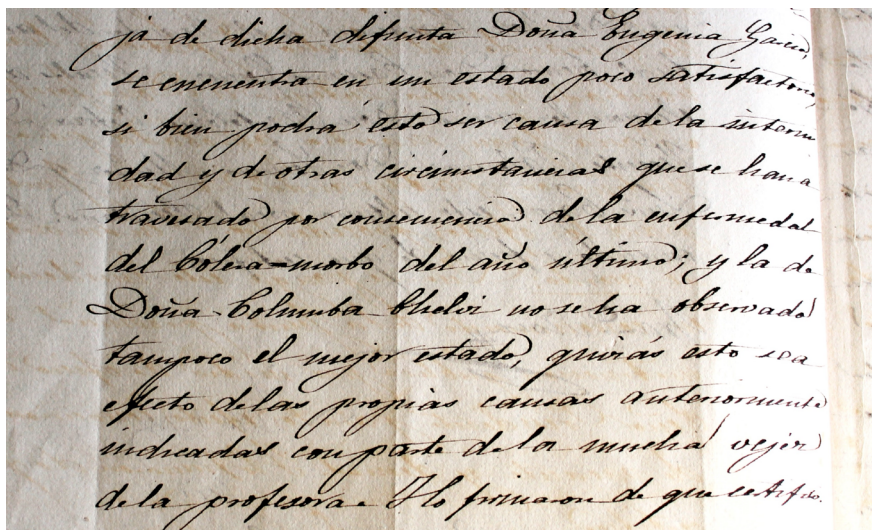 ja de dicha difunta Doña Eugenia García,
se encuentra en un estado poco satisfactorio,
si bien podrá esto ser causa de la interini
dad y de otras circunstancias que se han a
travesado por consecuencia de la enfermedad
del Cólera=morbo del año último; y la de
Doña Columba Chelvi no se ha observado
tampoco el mejor estado, quizás esto sea
efecto de las propias causas anteriormente
indicadas con parte de la mucha vejez
de la profesora. I lo firmaron de que certifico.